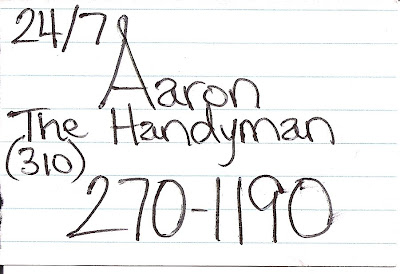 24/7
Aaron
The Handyman
(310)
270-1190